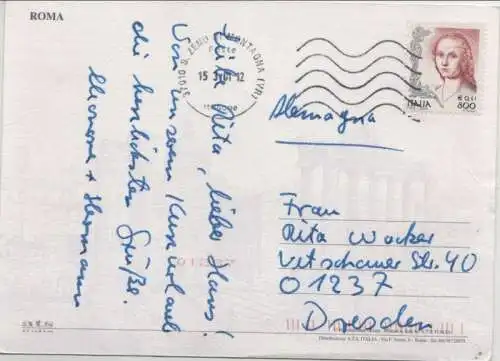 ROMA
Liebe Rita, lieber Hans!
Von unserem Kurzurlaub
die herzlichsten Grüße.
Eleonore + Hermann
37010 S. ZENO DI MONTAGNA (VR)
15 3 01 12
ITALIA
€ 0,41
800
Alemagna
Frau
Rita Wacker
Vetschauer Str. 40
01237
Dresden